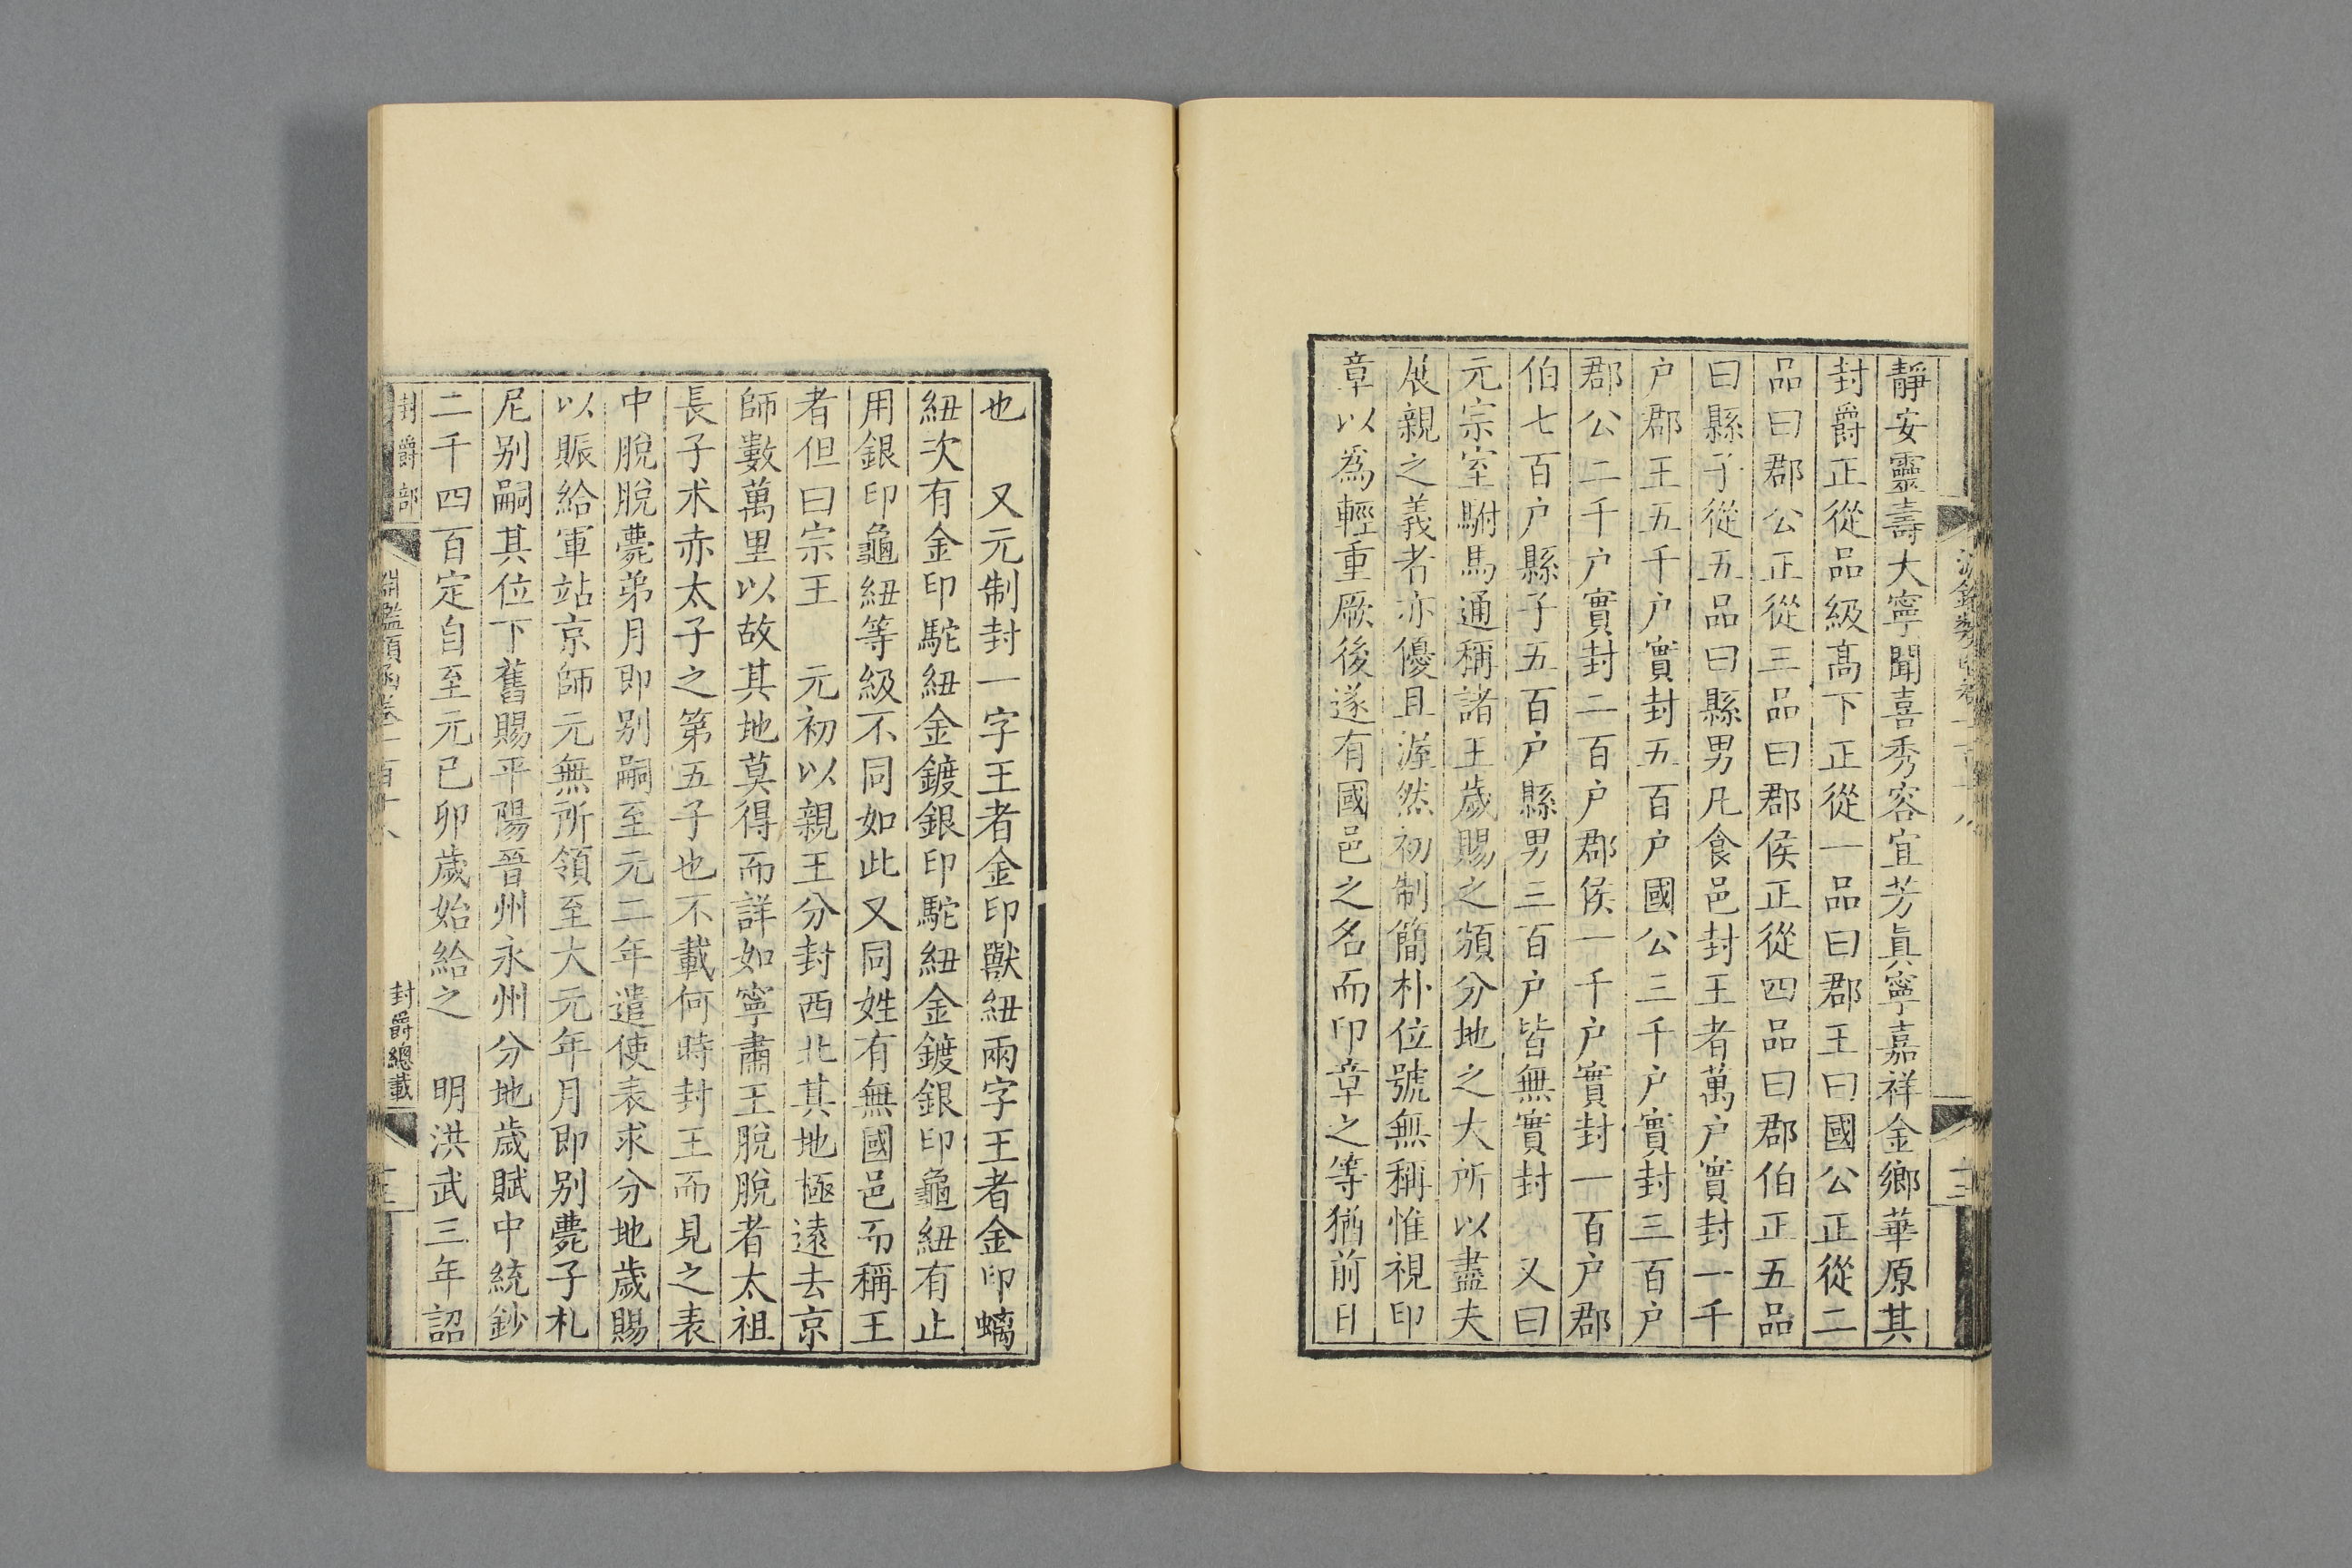 靜安靈壽大寧聞喜秀容宜芳眞寧嘉祥金鄉華原其
封爵正從品級高下正從一品曰郡王曰國公正從二
品曰郡公正從三品曰郡侯正從四品曰郡伯正五品
曰縣子從五品曰縣男凡食邑封王者萬户實封一千
户郡王五千户實封五百户國公三千户實封三百户
郡公二千户實封二百户郡侯一千户實封一百户郡
伯七百户縣子五百户縣男三百户皆無實封　又曰
元宗室駙馬通稱諸王歲賜之頒分地之大所以盡夫
展親之義者亦優且渥然初制簡朴位號無稱惟視印
章以爲輕重厥後遂有國邑之名而印章之等猶前日
也　又元制封一字王者金印獸紐兩字王者金印螭
紐次有金印駝紐金鍍銀印駝紐金鍍銀印龜紐有止
用銀印龜紐等級不同如此又同姓有無國邑而稱王
者但曰宗王　元初以親王分封西北其地極遠去京
師數萬里以故其地莫得而詳如寧肅王脫脫者太祖
長子朮赤太子之第五子也不載何時封王而見之表
中脫脫薨弟月即别嗣至元二年遣使表求分地歲賜
以賑給軍站京師元無所領至大元年月即别薨子札
尼别嗣其位下舊賜平陽晉州永州分地歲賦中統鈔
二千四百定自至元己卯歲始給之　明洪武三年詔
封爵部
淵鑑類函卷一百十八
封爵總載